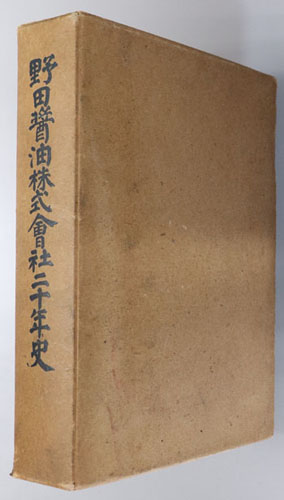 野田醤油株式會社二十年史